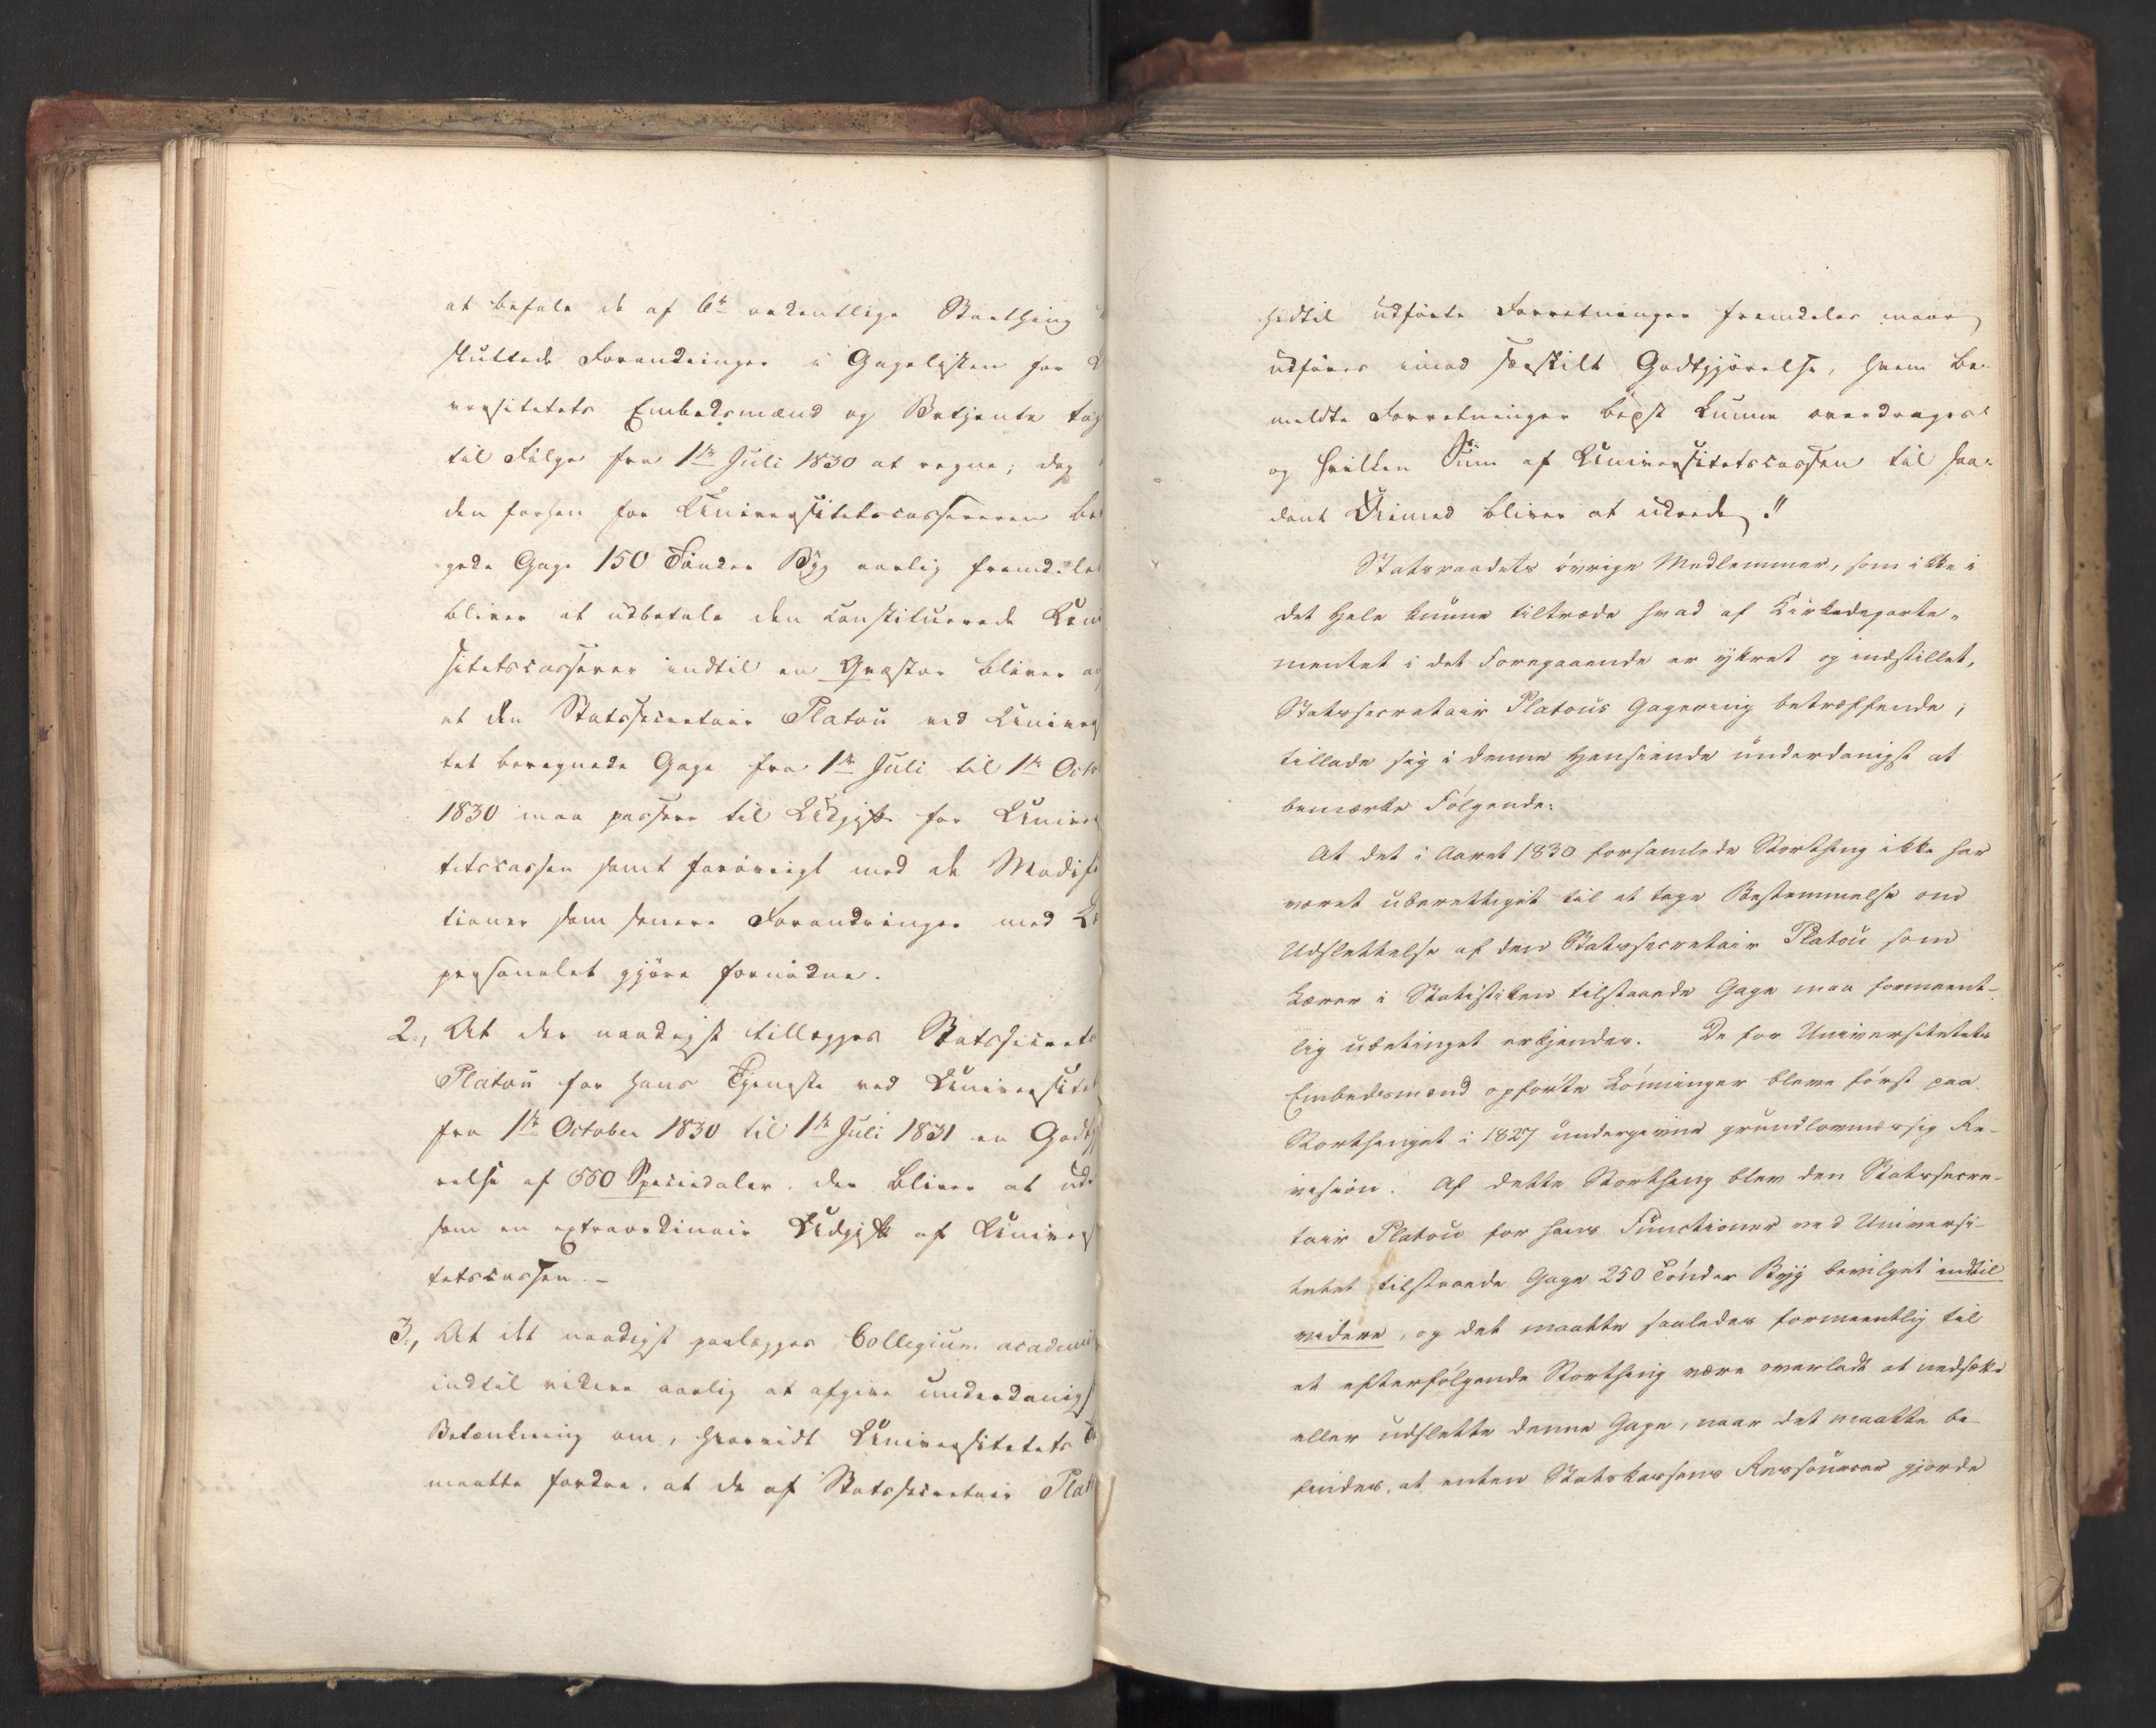 at befale de af 6te ordentlige Storthing
sluttede Forandringer i Gagelisten for
versitetets Embedsmænd og Betjente tag
til Følge fra 1ste Juli 1830 at regne; dog
den forhen for Universitetscassereren be
gede Gage 150 Tønder Byg aarlig fremdeles
bliver at udbetale den constituerede Univ
sitetscasserer indtil en Qvæstor bliver a
at den Statssecretair Platou ved Univers
tet beregnede Gage fra 1ste Juli til 1ste Octo
1830 maa passere til Udgift for Univer
tetscassen samt forøvrigt med de Modifi
tioner som senere Forandringer med
personalet gjøre fornødne.
2., At der naadigst tillægges Statssecreta
Platou for hans Tjeneste ved Universitet
fra 1ste October 1830 til 1ste Juli 1831 en Godtgj
relse af 550 Speciedaler, der bliver at ud
som en extraordinair Udgift af Univers
tetscassen. –
3., At det naadigst paalægges Collegium academi
indtil videre aarlig at afgive underdanigst
Betænkning om, hvorvidt Universitetets
maatte fordre, at de af Statssecretair Plat
hidtil udførte Forretninger fremdeles maae
udføres imod særskilt Godtgjørelse, hvem be-
meldte Forretninger bedst kunne overdrages
og hvilken Sum af Universitetscassen til saa-
dant Øiemed bliver at udrede."
Statsraadets øvrige Medlemmer, som ikke i
det Hele kunne tiltræde hvad af Kirkedeparte-
mentet i det Foregaaende er yttret og indstillet,
Statssecretair Platous Gagering betræffende,
tillade sig i denne Henseende underdanigst at
bemærke Følgende:
At det i Aaret 1830 forsamlede Storthing ikke har
været uberettiget til at tage Bestemmelse om
Udslettelse af den Statssecretair Platou som
Lærer i Statistiken tilstaaede Gage maa formeent-
lig ubetinget erkjendes. De for Universitetets
Embedsmænd opførte Lønninger bleve først paa
Storthinget i 1827 undergivne grundlovmæssig Re-
vision. Af dette Storthing blev den Statssecre-
tair Platou for hans Functioner ved Universi-
tetet tilstaaede Gage 250 Tønder Byg bevilget indtil
videre, og det maatte saaledes formeentlig til
et efterfølgende Storthing være overladt at nedsætte
eller udslette denne Gage, naar det maatte be-
findes, at enten Statskassens Ressourcer gjorde